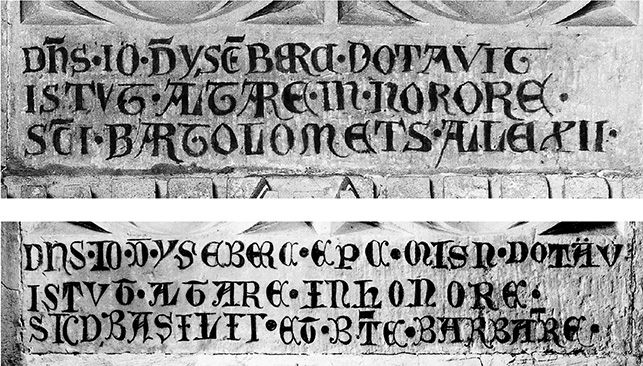 DN̄S · IO · D̄ YSĒBERG · DOTAVIT
ISTVT · ALTARE · IN · HONORE ·
SC̄TI · BARTOLOMETS · ALLEXII ·
DN̄S · IO · D̄ · YSEBERC · EPC · MISN · DOTAV̄
ISTVT · ALTARE · IN HONORE ·
S̄TC̄D BASILII · ET · BT̄E · BARBAR̄E ·